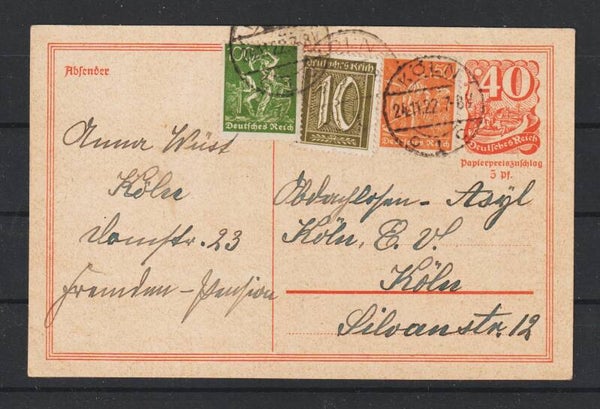 Absender
Deutsches Reich
Deutsches Reich
10
KÖLN
24.11.22.7-8V.
40
Deutsches Reich
Papierpreiszuschlag
5 Pf.
Anna Wüst
Köln
Domstr. 23
Fremden-Pension
Obdachlosen-Asyl
Köln, E. V.
Köln
Silvanstr. 12